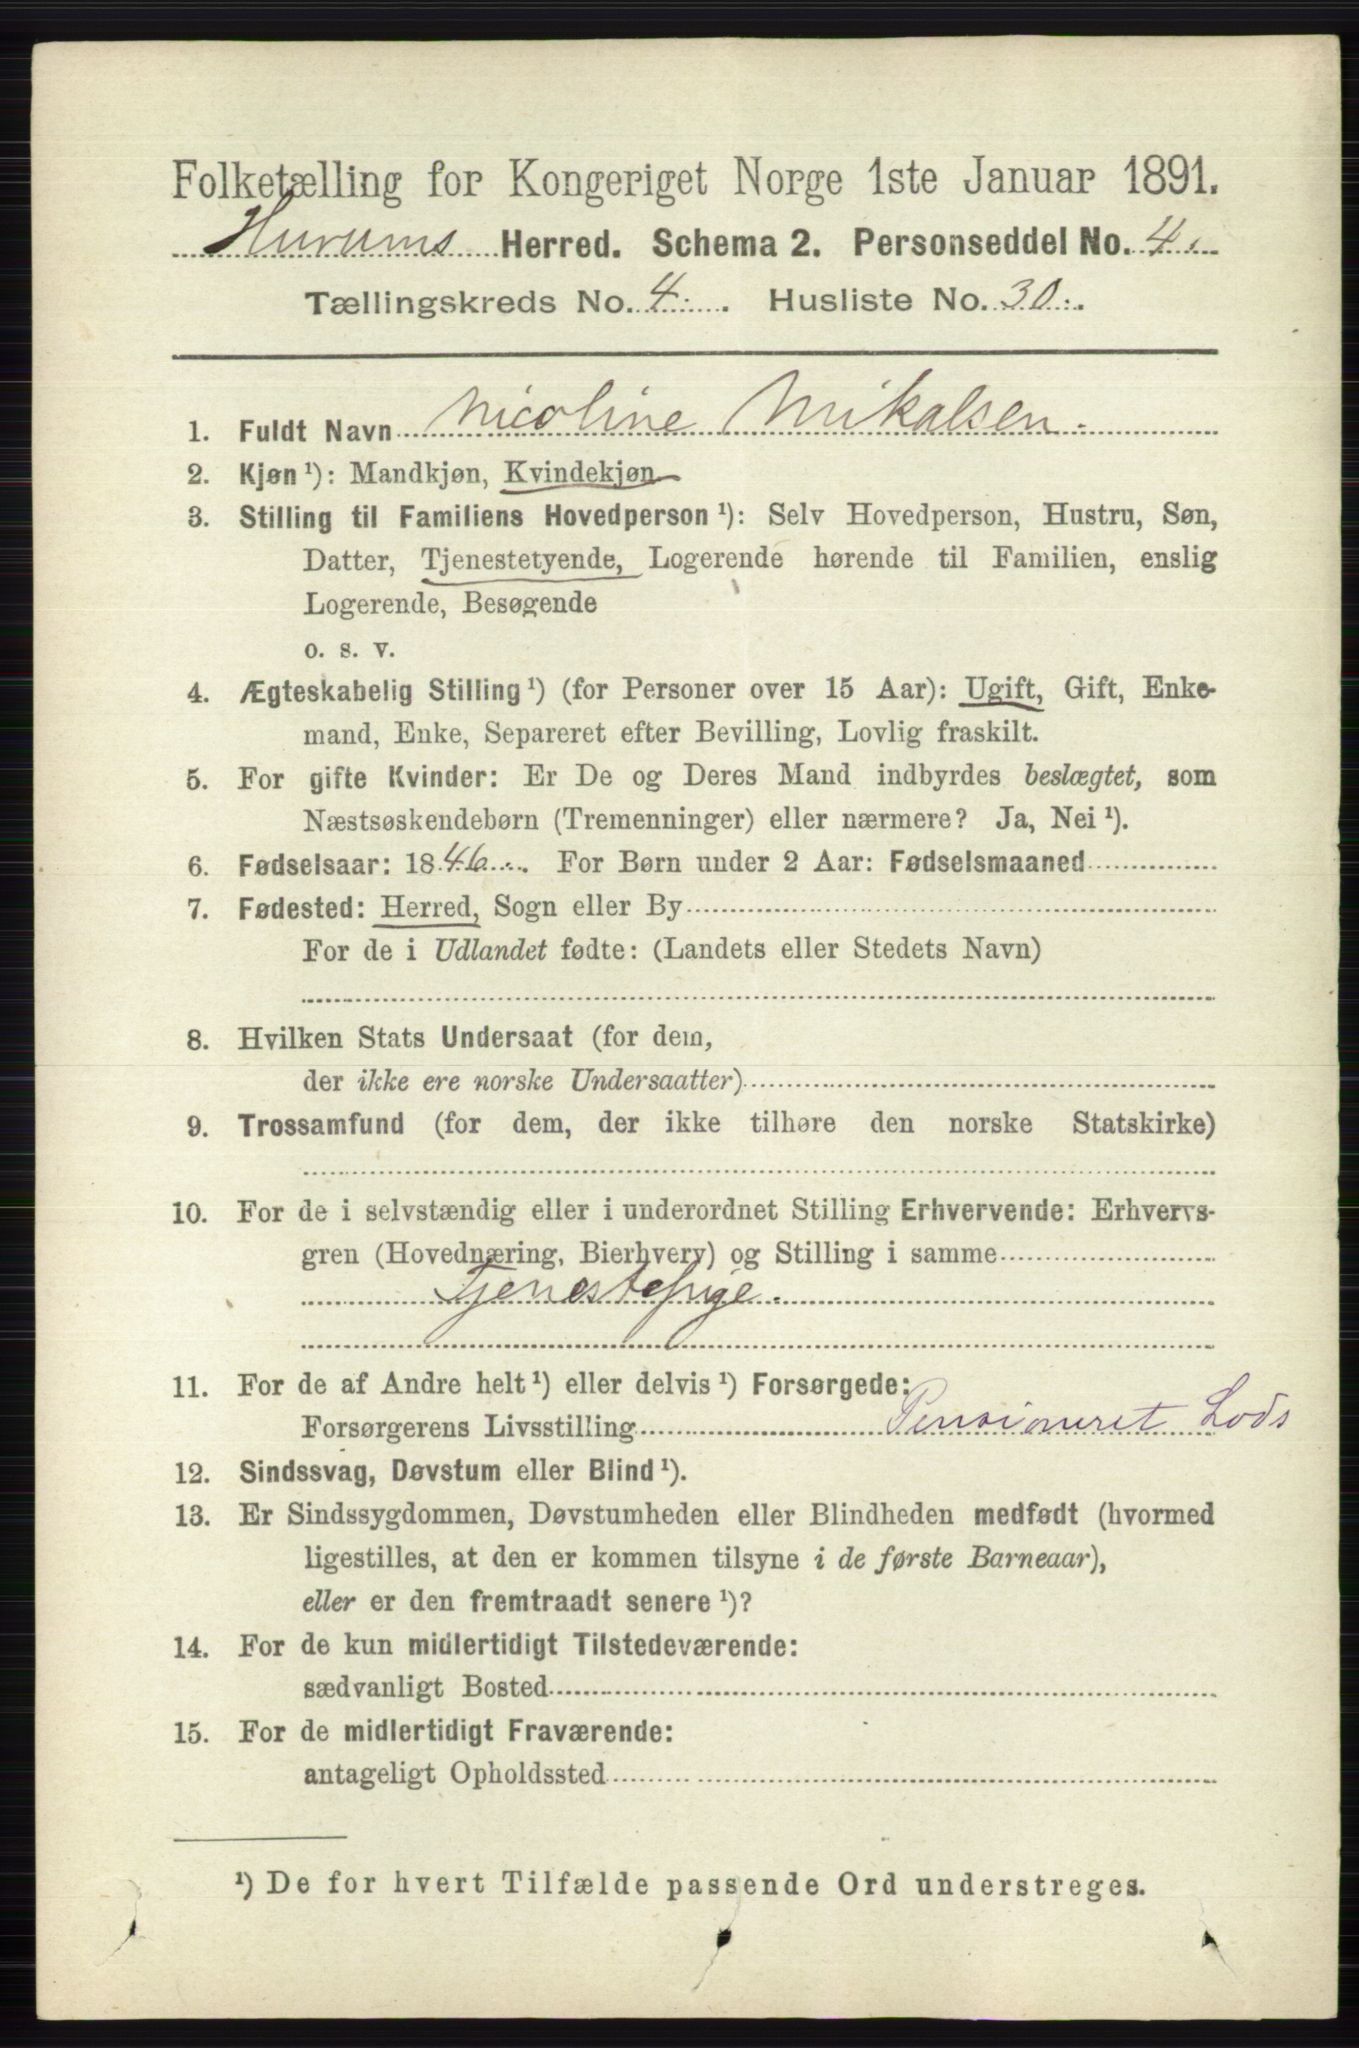 Folketælling for Kongeriget Norge 1ste Januar 1891.
Hurums Herred. Schema 2. Personseddel No. 4.
Tællingskreds No. 4. Husliste No. 30.
1. Fuldt Navn Nicoline Mikalsen.
2. Kjøn ¹): Mandkjøn, Kvindekjøn
3. Stilling til Familiens Hovedperson ¹): Selv Hovedperson, Hustru, Søn,
Datter, Tjenestetyende, Logerende hørende til Familien, enslig
Logerende, Besøgende
o. s. v.
4. Ægteskabelig Stilling ¹) (for Personer over 15 Aar): Ugift, Gift, Enke-
mand, Enke, Separeret efter Bevilling, Lovlig fraskilt.
5. For gifte Kvinder: Er De og Deres Mand indbyrdes beslægtet, som
Næstsøskendebørn (Tremenninger) eller nærmere? Ja, Nei ¹).
6. Fødselsaar: 1846. For Børn under 2 Aar: Fødselsmaaned
7. Fødested: Herred, Sogn eller By
For de i Udlandet fødte: (Landets eller Stedets Navn)
8. Hvilken Stats Undersaat (for dem,
der ikke ere norske Undersaatter)
9. Trossamfund (for dem, der ikke tilhøre den norske Statskirke)
10. For de i selvstændig eller i underordnet Stilling Erhvervende: Erhvervs-
gren (Hovednæring, Bierhverv) og Stilling i samme
Tjenestepige.
11. For de af Andre helt ¹) eller delvis ¹) Forsørgede:
Forsørgerens Livsstilling Pensioneret Lods
12. Sindssvag, Døvstum eller Blind ¹).
13. Er Sindssygdommen, Døvstumheden eller Blindheden medfødt (hvormed
ligestilles, at den er kommen tilsyne i de første Barneaar),
eller er den fremtraadt senere ¹)?
14. For de kun midlertidigt Tilstedeværende:
sædvanligt Bosted
15. For de midlertidigt Fraværende:
antageligt Opholdssted
¹) De for hvert Tilfælde passende Ord understreges.